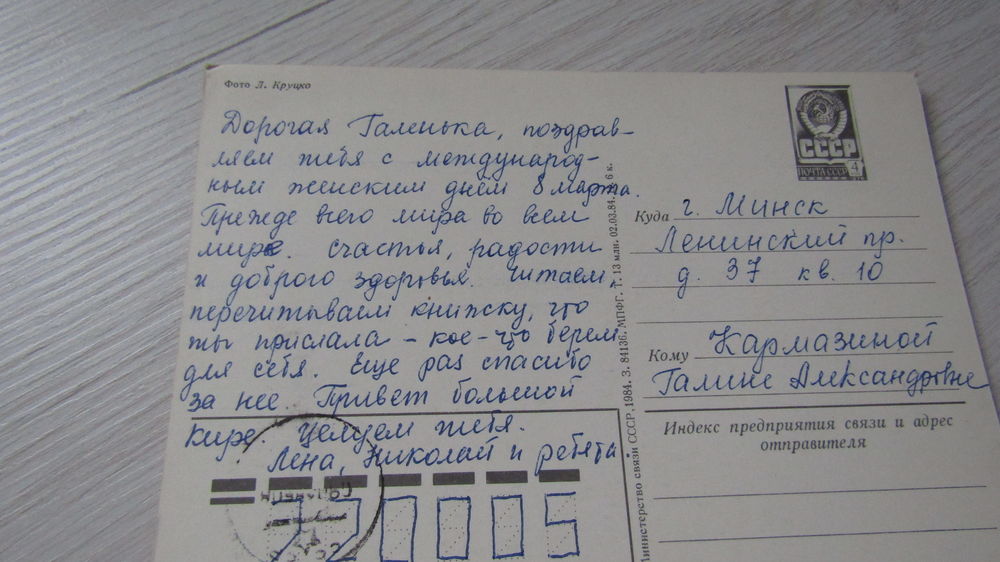 Фото Л. Круцко
Дорогая Галенька, поздрав-
ляем тебя с международ-
ным женским днём 8 марта.
Прежде всего мира во всём
мире. Счастья, радости
и доброго здоровья. Читаем,
перечитываем книжку, что
ты прислала – кое-что берём
для себя. Ещё раз спасибо
за нее. Привет большой
Кире. Целуем тебя.
Лена, Николай и ребята.
СССР
ПОЧТА СССР 4
Куда г. Минск
Ленинский пр.
д. 37 кв. 10
Кому Кармазиной
Галине Александровне
Индекс предприятия связи и адрес
отправителя
Министерство связи СССР, 1984. З. 84136. МПФГ. Т. 13 млн. 02.03.84. 6 к.
220005